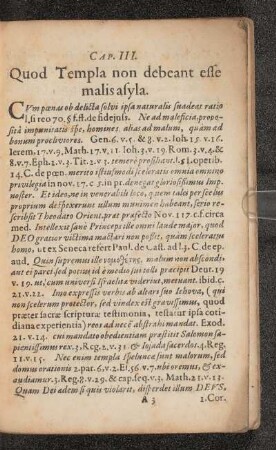 CAP. III.
Quod Templa non debeant esse
malis asyla.
CVm pœnas ob delicta solvi ipsa naturalis suadeat ratio
l. si reo 70. § f. ff. de fidejuss. Ne ad maleficia, propo-
sitâ impunitatis spe, homines alias ad malum, quàm ad
bonum procliviores. Gen. 6. v. 5. & 8. v. 2. Joh. 15. v. 16.
Ierem. 17. v. 9. Math. 17. v. 11. Ioh. 3. v. 19. Rom. 3. v. 4. &
8. v. 7. Eph. 2. v. 3. Tit. 2. v. 3. temerè prosiliant. l. opertib.
14. C. de pœn. meritò istiusmodi sceleratis omnia omnino
privilegia in nov. 17. c. 5. in pr. denegat gloriosissimus Imp.
noster. Et ideo, ne in venerabili loco, quem tales per scelus
proprium despexerunt ullum munimen habeant, seriò re-
scribsit Theodoto Orient. præt præfecto Nov. 117. c. f. circa
med. Intellexit sanè Princeps ille omni laude major, quod
DEO gratior victima mactari non possit, quàm sceleratus
homo, ut ex Seneca refert Paul. de Cast. ad l. 3. C. de ep.
aud. Quin supremus ille malum non abscondi
aut ei parci sed potius id è medio sui tolli præcipit Deut. 19
v. 19. ut, cum universi Israelitæ viderint, metuant. ibid. c.
21. v. 22. Imo expressis verbis ab altari suo Jehova (qui
non scelerum protector, sed vindex est gravissimus, quod
præter sacræ scripturæ testimonia, testatur ipsa coti-
diana experientia) reos ad necē abstrahi mandat. Exod.
21. v. 14. cui mandato obedientiam præstitit Salomon sa-
pientissimus rex. 3. Reg. 2. v. 31. & Iojada sacerdos. 4. Reg.
11. v. 15. Nec enim templa spelunca sunt malorum, sed
domus orationis 2. par. 6. v. 2. Ei. 56. v. 7. ubi oremus, & ex-
audiamur. 3. Reg. 8. v. 29. & cap. seq. v. 3. Math. 21. v. 13.
Quam Dei ædem si quis violarit, disperdet illum DEVS,
A 3 1. Cor.